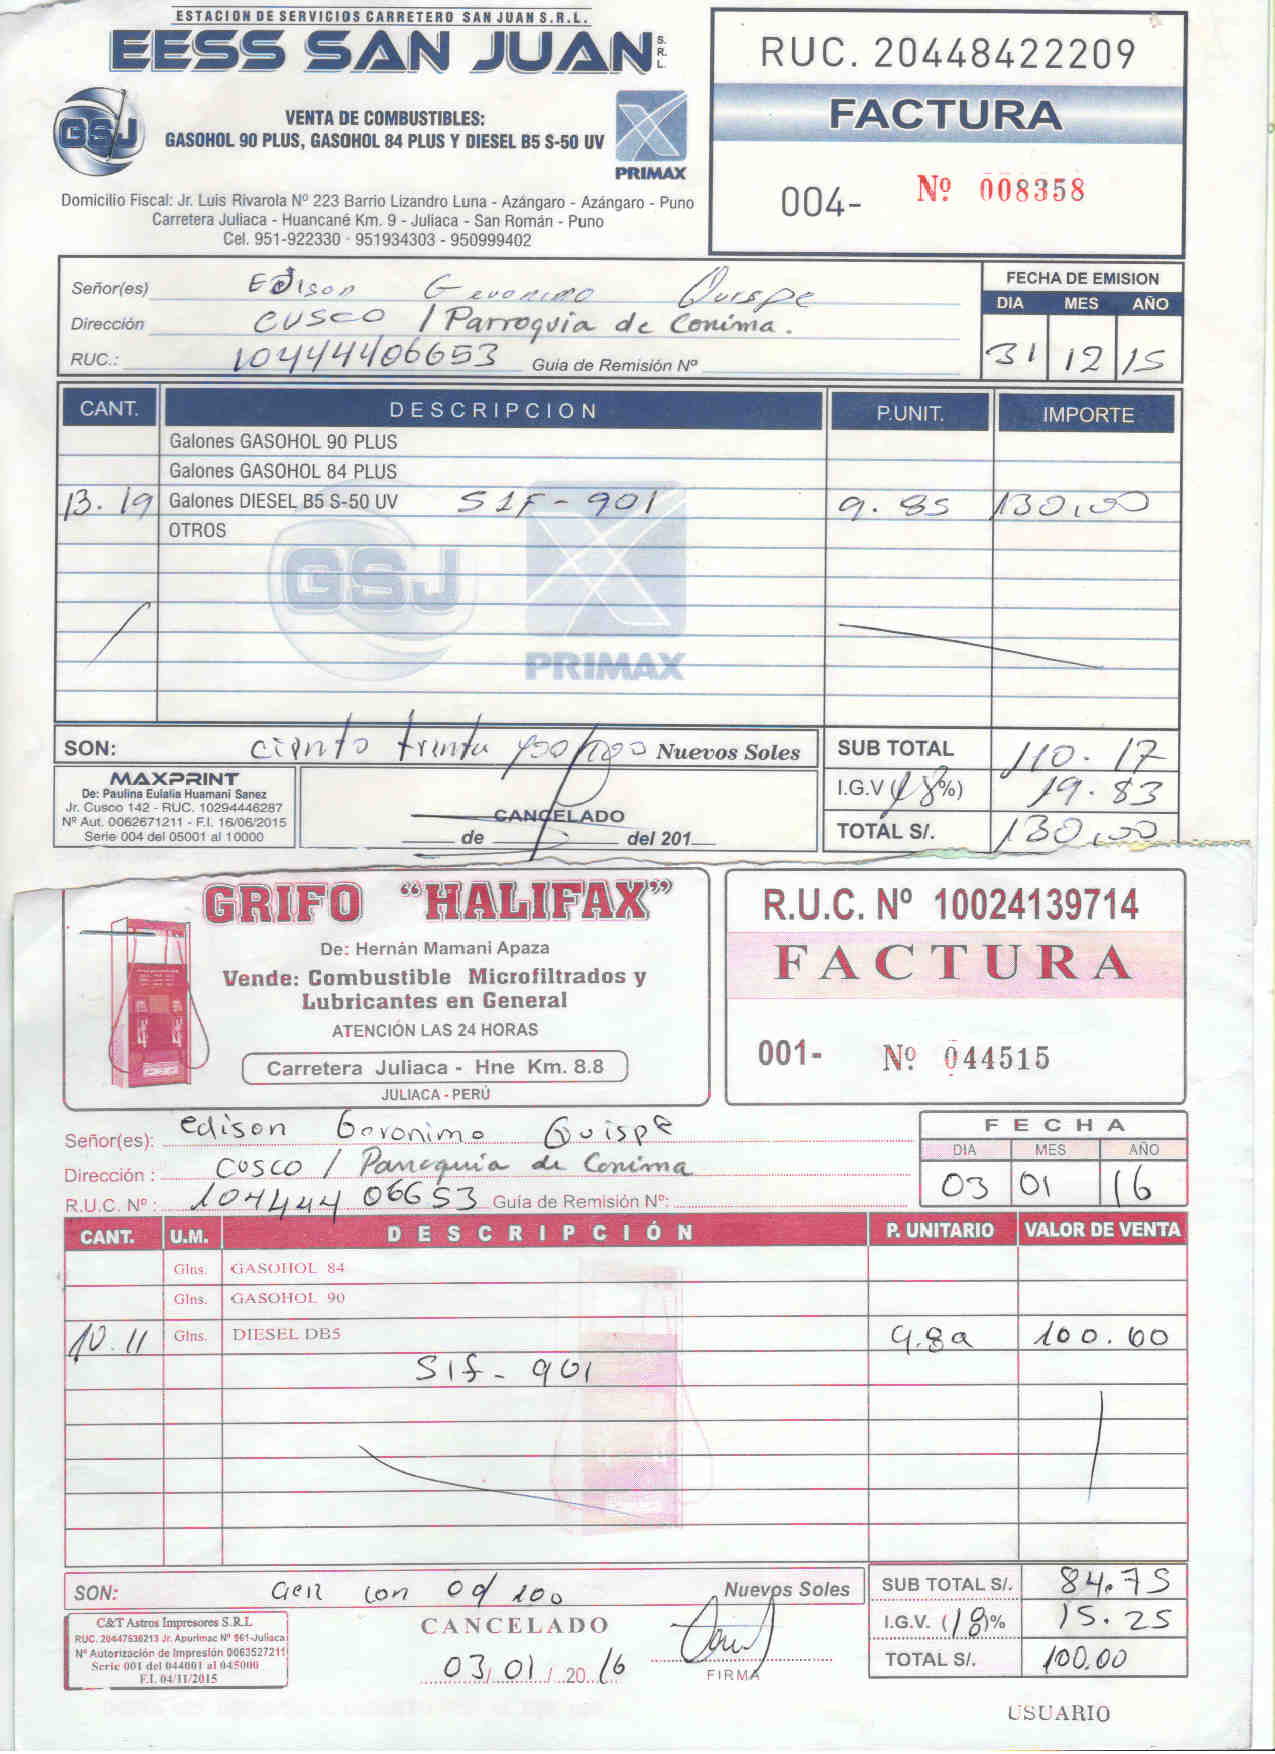 ESTACION DE SERVICIOS CARRETERO SAN JUAN S.R.L.
EESS SAN JUAN S.R.L.
GSJ
VENTA DE COMBUSTIBLES:
GASOHOL 90 PLUS, GASOHOL 84 PLUS Y DIESEL B5 S-50 UV
PRIMAX
Domicilio Fiscal: Jr. Luis Rivarola Nº 223 Barrio Lizandro Luna - Azángaro - Azángaro - Puno
Carretera Juliaca - Huancané Km. 9 - Juliaca - San Román - Puno
Cel. 951-922330 - 951934303 - 950999402
RUC. 20448422209
FACTURA
004- Nº 008358
Señor(es) Edison Geronimo Quispe
Dirección CUSCO / Parroquia de Conima.
RUC.: 10444406653 Guía de Remisión Nº
FECHA DE EMISION
DIA MES AÑO
31 12 15
CANT. DESCRIPCION P.UNIT. IMPORTE
Galones GASOHOL 90 PLUS
Galones GASOHOL 84 PLUS
13.19 Galones DIESEL B5 S-50 UV S1F-901 9.85 130,00
OTROS
GSJ PRIMAX
SON: ciento trinta y00/100 Nuevos Soles
SUB TOTAL 110.17
I.G.V (18%) 19.83
TOTAL S/. 130,00
MAXPRINT
De: Paulina Eulalia Huamani Sanez
Jr. Cusco 142 - RUC. 10294446287
Nº Aut. 0062671211 - F.I. 16/06/2015
Serie 004 del 05001 al 10000
CANCELADO
de del 201
GRIFO "HALIFAX"
De: Hernán Mamani Apaza
Vende: Combustible Microfiltrados y
Lubricantes en General
ATENCIÓN LAS 24 HORAS
Carretera Juliaca - Hne Km. 8.8
JULIACA - PERÚ
R.U.C. Nº 10024139714
FACTURA
001- Nº 044515
Señor(es): edison Geronimo Quispe
Dirección : CUSCO / Parroquia de Conima
R.U.C. Nº : 10444406653 Guía de Remisión Nº:
FECHA
DIA MES AÑO
03 01 16
CANT. U.M. DESCRIPCIÓN P. UNITARIO VALOR DE VENTA
Glns. GASOHOL 84
Glns. GASOHOL 90
10.11 Glns. DIESEL DB5 9.89 100.00
S1f-901
SON: cien con 00/100 Nuevos Soles
SUB TOTAL S/. 84.75
I.G.V. (18)% 15.25
TOTAL S/. 100.00
C&T Astros Impresores S.R.L
RUC. 20447538213 Jr. Apurimac Nº 561-Juliaca
Nº Autorización de Impresión 0063527211
Serie 001 del 044001 al 045000
F.I. 04/11/2015
CANCELADO
03/01/2016
FIRMA
USUARIO